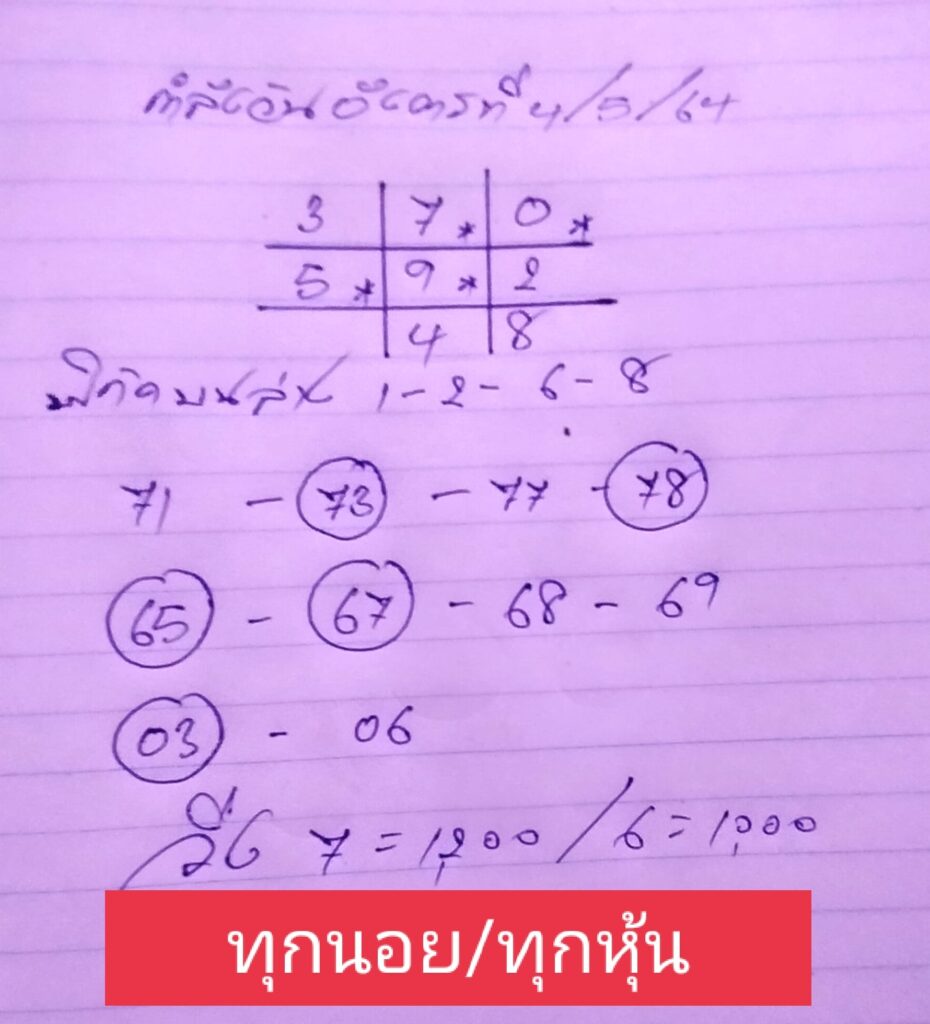 กำลังวันอังคารที่ 4/5/64
3 7* 0*
5* 9* 2
4 8
พิกัดบนล่าง 1-2-6-8
71 - 73 - 77 - 78
65 - 67 - 68 - 69
03 - 06
7 = 1,200 / 6 = 1,000
ทุกนอย/ทุกหุ้น